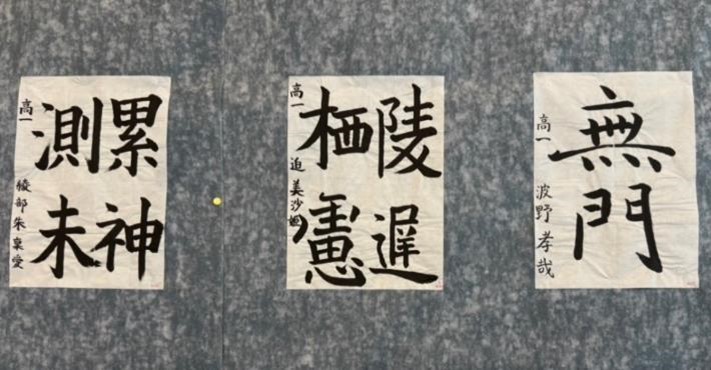 無門
高一 波野孝哉
陵遅
栖
高一 迫 美沙
累神
測未
高一 綾部朱稟愛